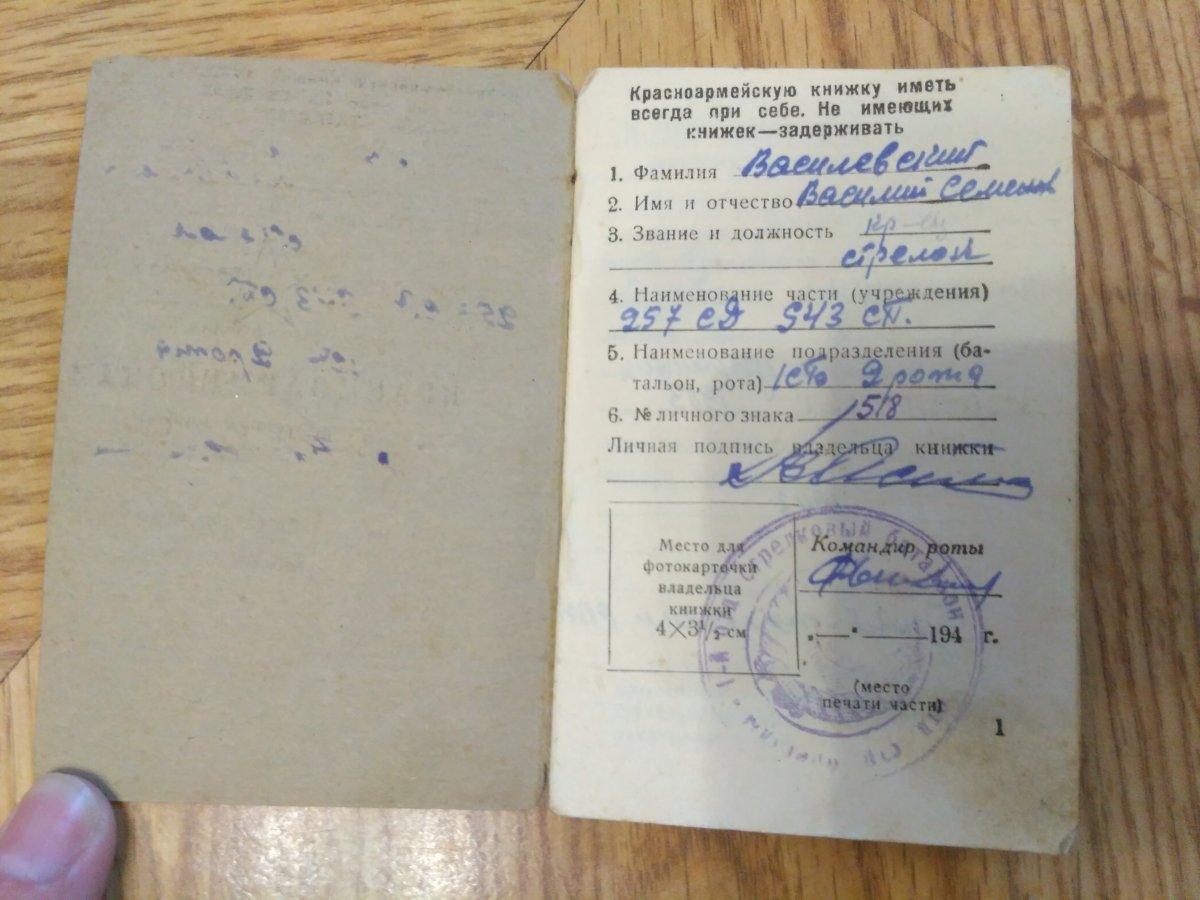 Красноармейскую книжку иметь
всегда при себе. Не имеющих
книжек—задерживать
1. Фамилия Василевский
2. Имя и отчество Василий Семенов
3. Звание и должность кр-ец
стрелок
4. Наименование части (учреждения)
257 СД 943 СП.
5. Наименование подразделения (ба-
тальон, рота) 1СБ 2 рота
6. № личного знака 1518
Личная подпись владельца книжки
Место для
фотокарточки
владельца
книжки
4×3½ см
Командир роты
194 г.
(место
печати части)
1-й стрелковый батальон
1